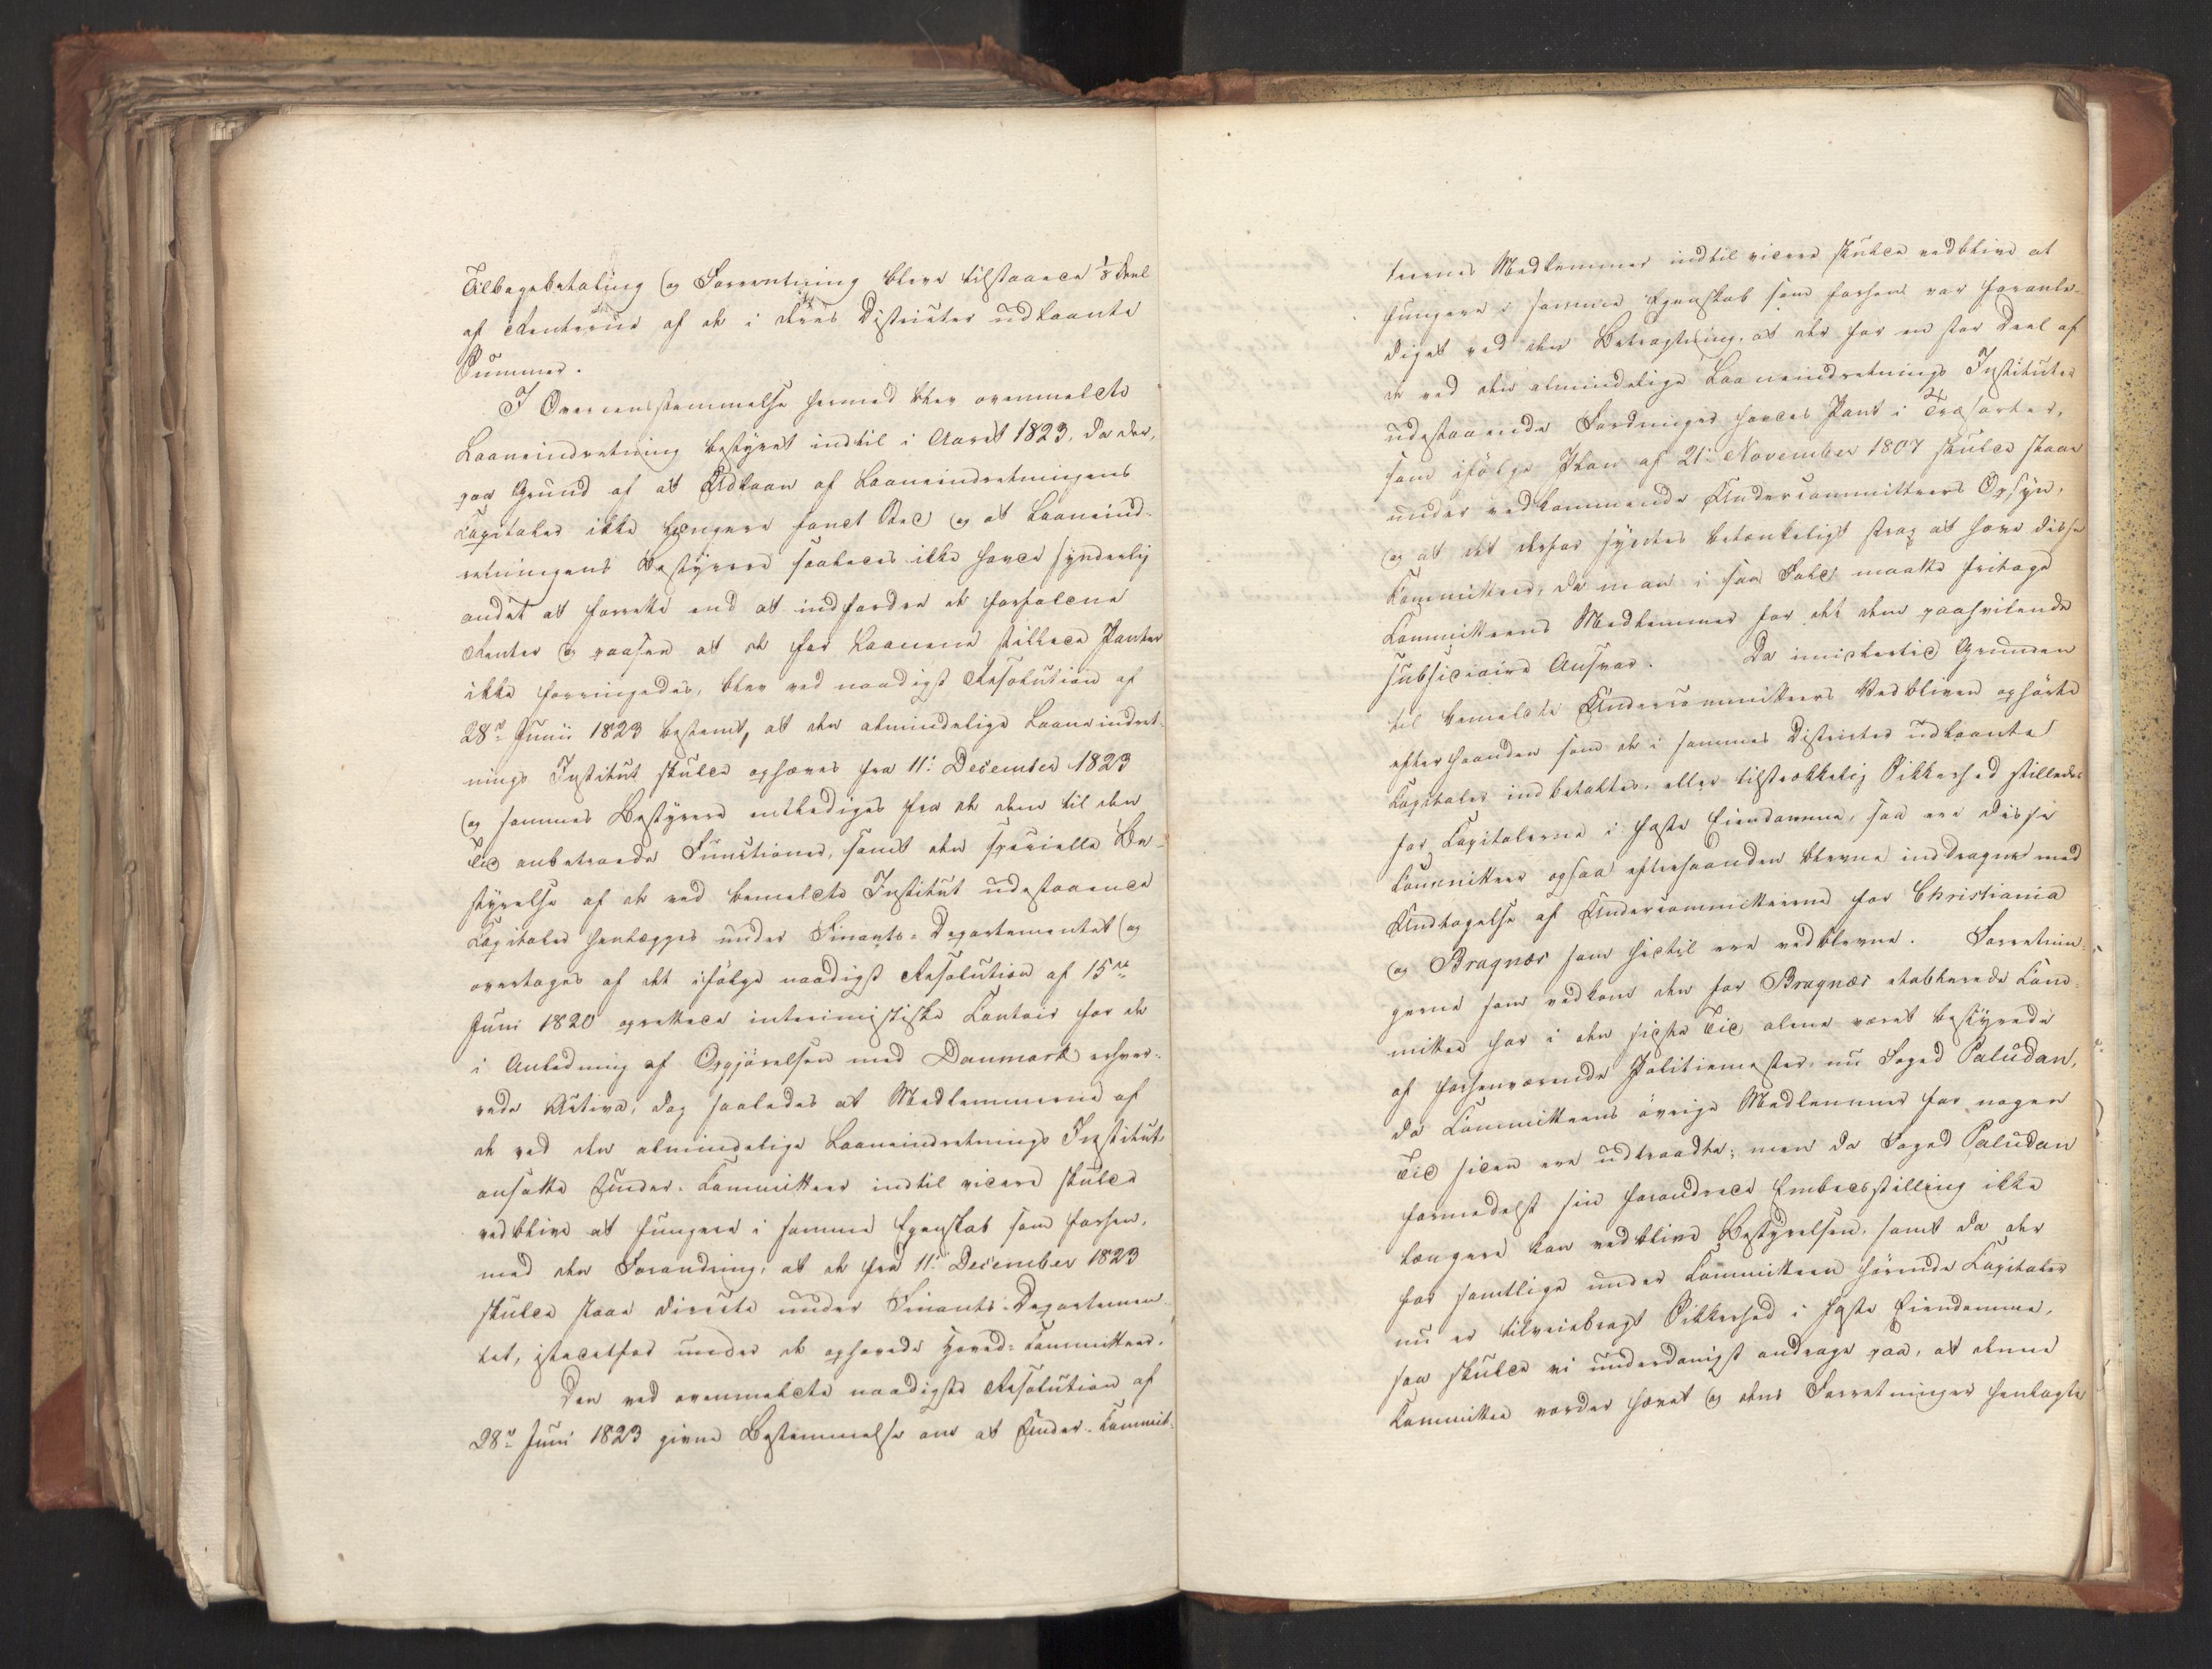 Tilbagebetaling og Forrentning bleve tilstaaede 1/8 Deel
af Renterne af de i deres Districter udlaante
Summer.
I Overensstemmelse hermed blev ovenmeldte
Laaneindretning bestyret indtil i Aaret 1823, da der,
paa Grund af at Udlaan af Laaneindretningens
Capitaler ikke længere fandt Sted og at Laaneind-
retningens Bestyrere saaledes ikke havde synderlig
andet at forrette end at indfordre de forfaldne
Renter og paasee at de for Laanene stillede Panter
ikke forringedes, blev ved naadigst Resolution af
28de Junii 1823 bestemt, at den almindelige Laaneindret-
nings Institut skulde ophæves fra 11te December 1823
og sammes Bestyrere entlediges fra de dem til den
Tid anbetroede Functioner, samt den specielle Be-
styrelse af de ved bemeldte Institut udestaaende
Capitaler henlægges under Finants-Departementet og
overtages af det ifølge naadigst Resolution af 15de
Juni 1820 oprettede interimistiske Contoir for de
i Anledning af Opgjørelsen med Danmark erhver-
vede Activa, dog saaledes at Medlemmerne af
de ved den almindelige Laaneindretnings Institut
ansatte Under-Committeer indtil videre skulde
vedblive at fungere i samme Egenskab som forhen,
med den Forandring, at de fra 11te December 1823
skulde staae directe under Finants-Departemen-
tet, istedetfor under de ophævede Hoved-Committeer.
Den ved ovenmeldte naadigste Resolution af
28de Juni 1823 givne Bestemmelse om at Under-Commit-
teernes Medlemmer indtil videre skulde vedblive at
fungere i samme Egenskab som forhen var foranle-
diget ved den Betragtning, at der for en stor Deel af
de ved den almindelige Laaneindretnings Institutes
udestaaende Fordringer havdes Pant i Træsorter,
som ifølge Plan af 21de November 1807 skulde staae
under vedkommende Undercommitteers Opsyn,
og at det derfor syntes betænkeligt strax at hæve disse
Committeer, da man i saa Fald maatte fritage
Committeens Medlemmer for det dem paahvilende
subsidiaire Ansvar. Da imidlertid Grunden
til bemeldte Undercommitteers Vedbliven ophørte
efterhaanden som de i sammes Districter udlaante
Capitaler indbetaltes, eller tilstrækkelig Sikkerhed stilledes
for Capitalerne i faste Eiendomme, saa ere disse
Committeer ogsaa efterhaanden blevne inddragne med
Undtagelse af Undercommitteerne for Christiania
og Bragnæs som hidtil ere vedblevne. Forretnin-
gerne som vedkom den for Bragnæs etablerede Com-
mittee har i den sidste Tid alene været bestyrede
af forhenværende Politiemester, nu Foged Paludan,
da Committeens øvrige Medlemmer for nogen
Tid siden ere udtraadte; men da Foged Paludan
formedelst sin forandrede Embedsstilling ikke
længere kan vedblive Bestyrelsen, samt da der
for samtlige under Committeen hørende Capitaler
nu er tilveiebragt Sikkerhed i faste Eiendomme,
saa skulde vi underdanigst andrage paa, at denne
Committee vorder hævet og dens Forretninger henlagte